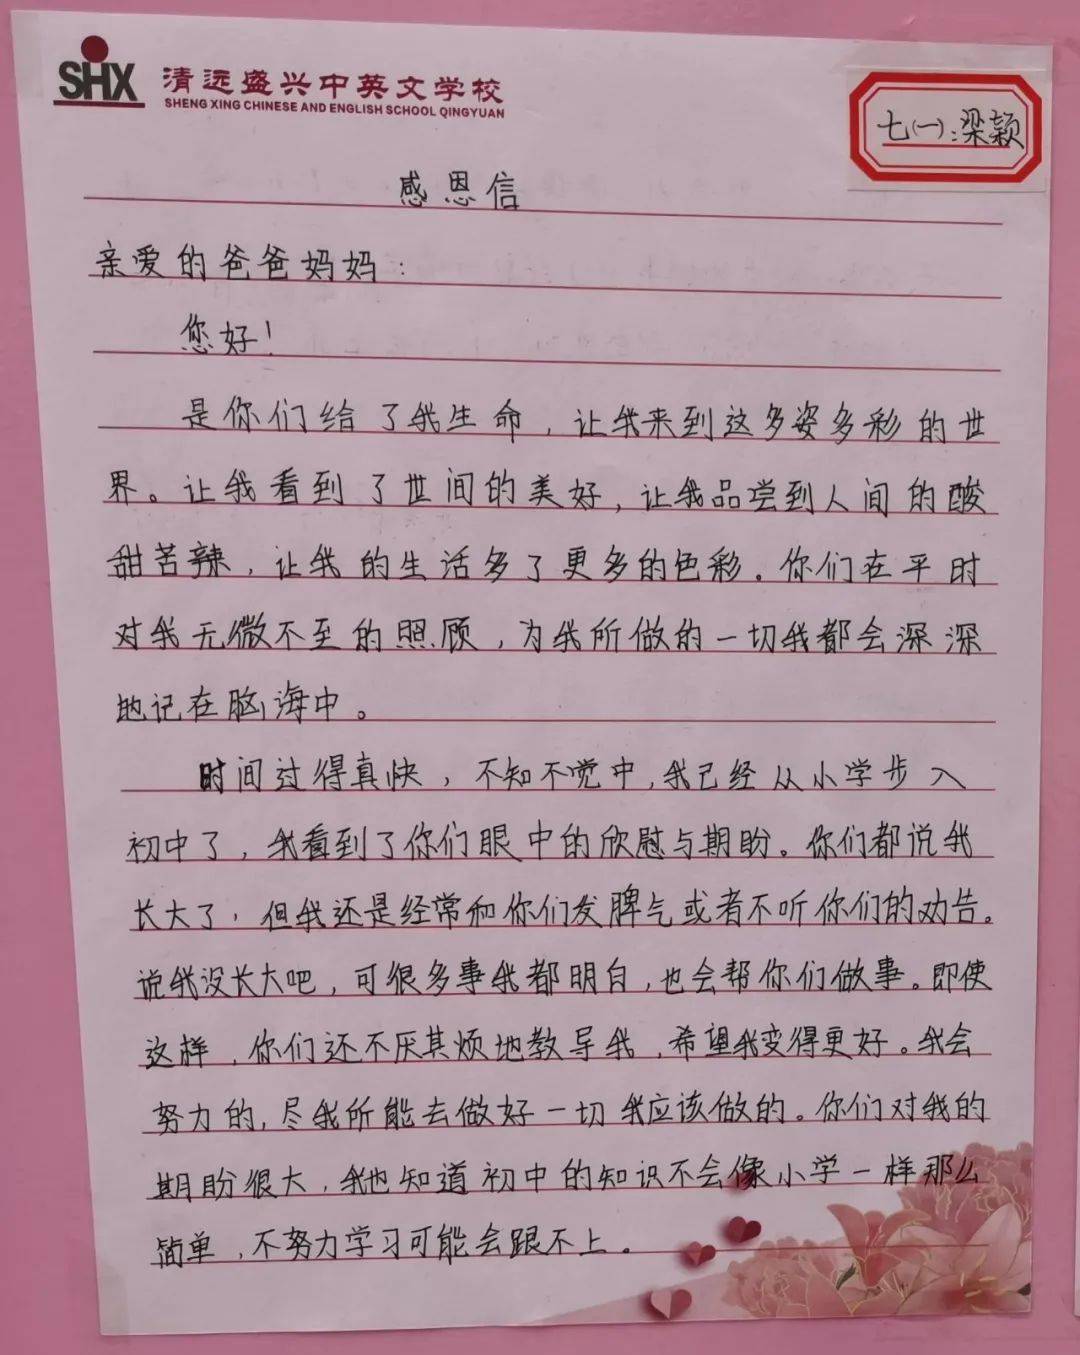 SHX 清远盛兴中英文学校
SHENG XING CHINESE AND ENGLISH SCHOOL QINGYUAN
七(一):梁颖
感恩信
亲爱的爸爸妈妈:
您好!
是你们给了我生命,让我来到这多姿多彩的世
界。让我看到了世间的美好,让我品尝到人间的酸
甜苦辣,让我的生活多了更多的色彩。你们在平时
对我无微不至的照顾,为我所做的一切我都会深深
地记在脑海中。
时间过得真快,不知不觉中,我已经从小学步入
初中了,我看到了你们眼中的欣慰与期盼。你们都说我
长大了,但我还是经常和你们发脾气或者不听你们的劝告。
说我没长大吧,可很多事我都明白,也会帮你们做事。即使
这样,你们还不厌其烦地教导我,希望我变得更好。我会
努力的,尽我所能去做好一切我应该做的。你们对我的
期盼很大,我也知道初中的知识不会像小学一样那么
简单,不努力学习可能会跟不上。